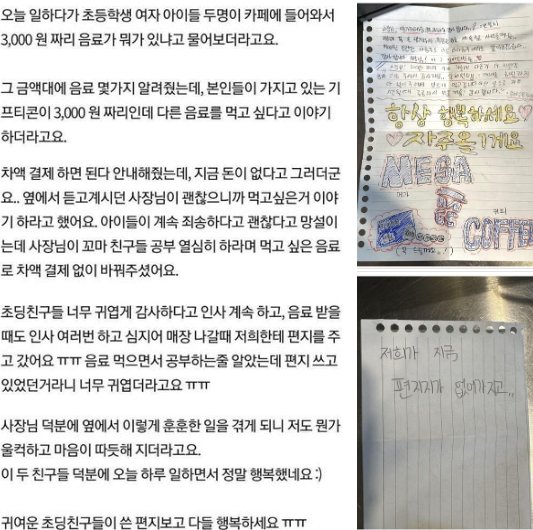 오늘 일하다가 초등학생 여자 아이들 두명이 카페에 들어와서
3,000 원 짜리 음료가 뭐가 있냐고 물어보더라고요.
그 금액대에 음료 몇가지 알려줬는데, 본인들이 가지고 있는 기
프티콘이 3,000 원 짜리인데 다른 음료를 먹고 싶다고 이야기
하더라고요.
차액 결제 하면 된다 안내해줬는데, 지금 돈이 없다고 그러더군
요.. 옆에서 듣고계시던 사장님이 괜찮으니까 먹고싶은거 이야
기 하라고 했어요. 아이들이 계속 죄송하다고 괜찮다고 망설이
는데 사장님이 꼬마 친구들 공부 열심히 하라며 먹고 싶은 음료
로 차액 결제 없이 바꿔주셨어요.
초딩친구들 너무 귀엽게 감사하다고 인사 계속 하고, 음료 받을
때도 인사 여러번 하고 심지어 매장 나갈때 저희한테 편지를 주
고 갔어요 ㅠㅠ 음료 먹으면서 공부하는줄 알았는데 편지 쓰고
있었던거라니 너무 귀엽더라고요 ㅠㅠ
사장님 덕분에 옆에서 이렇게 훈훈한 일을 겪게 되니 저도 뭔가
울컥하고 마음이 따듯해 지더라고요.
이 두 친구들 덕분에 오늘 하루 일하면서 정말 행복했네요 :)
귀여운 초딩친구들이 쓴 편지보고 다들 행복하세요 ㅠㅠ
항상 행복하세요♡
♡자주올게요
MEGA
메가
커피
COFFEE
저희가 지금
편지지가 없어가지고..